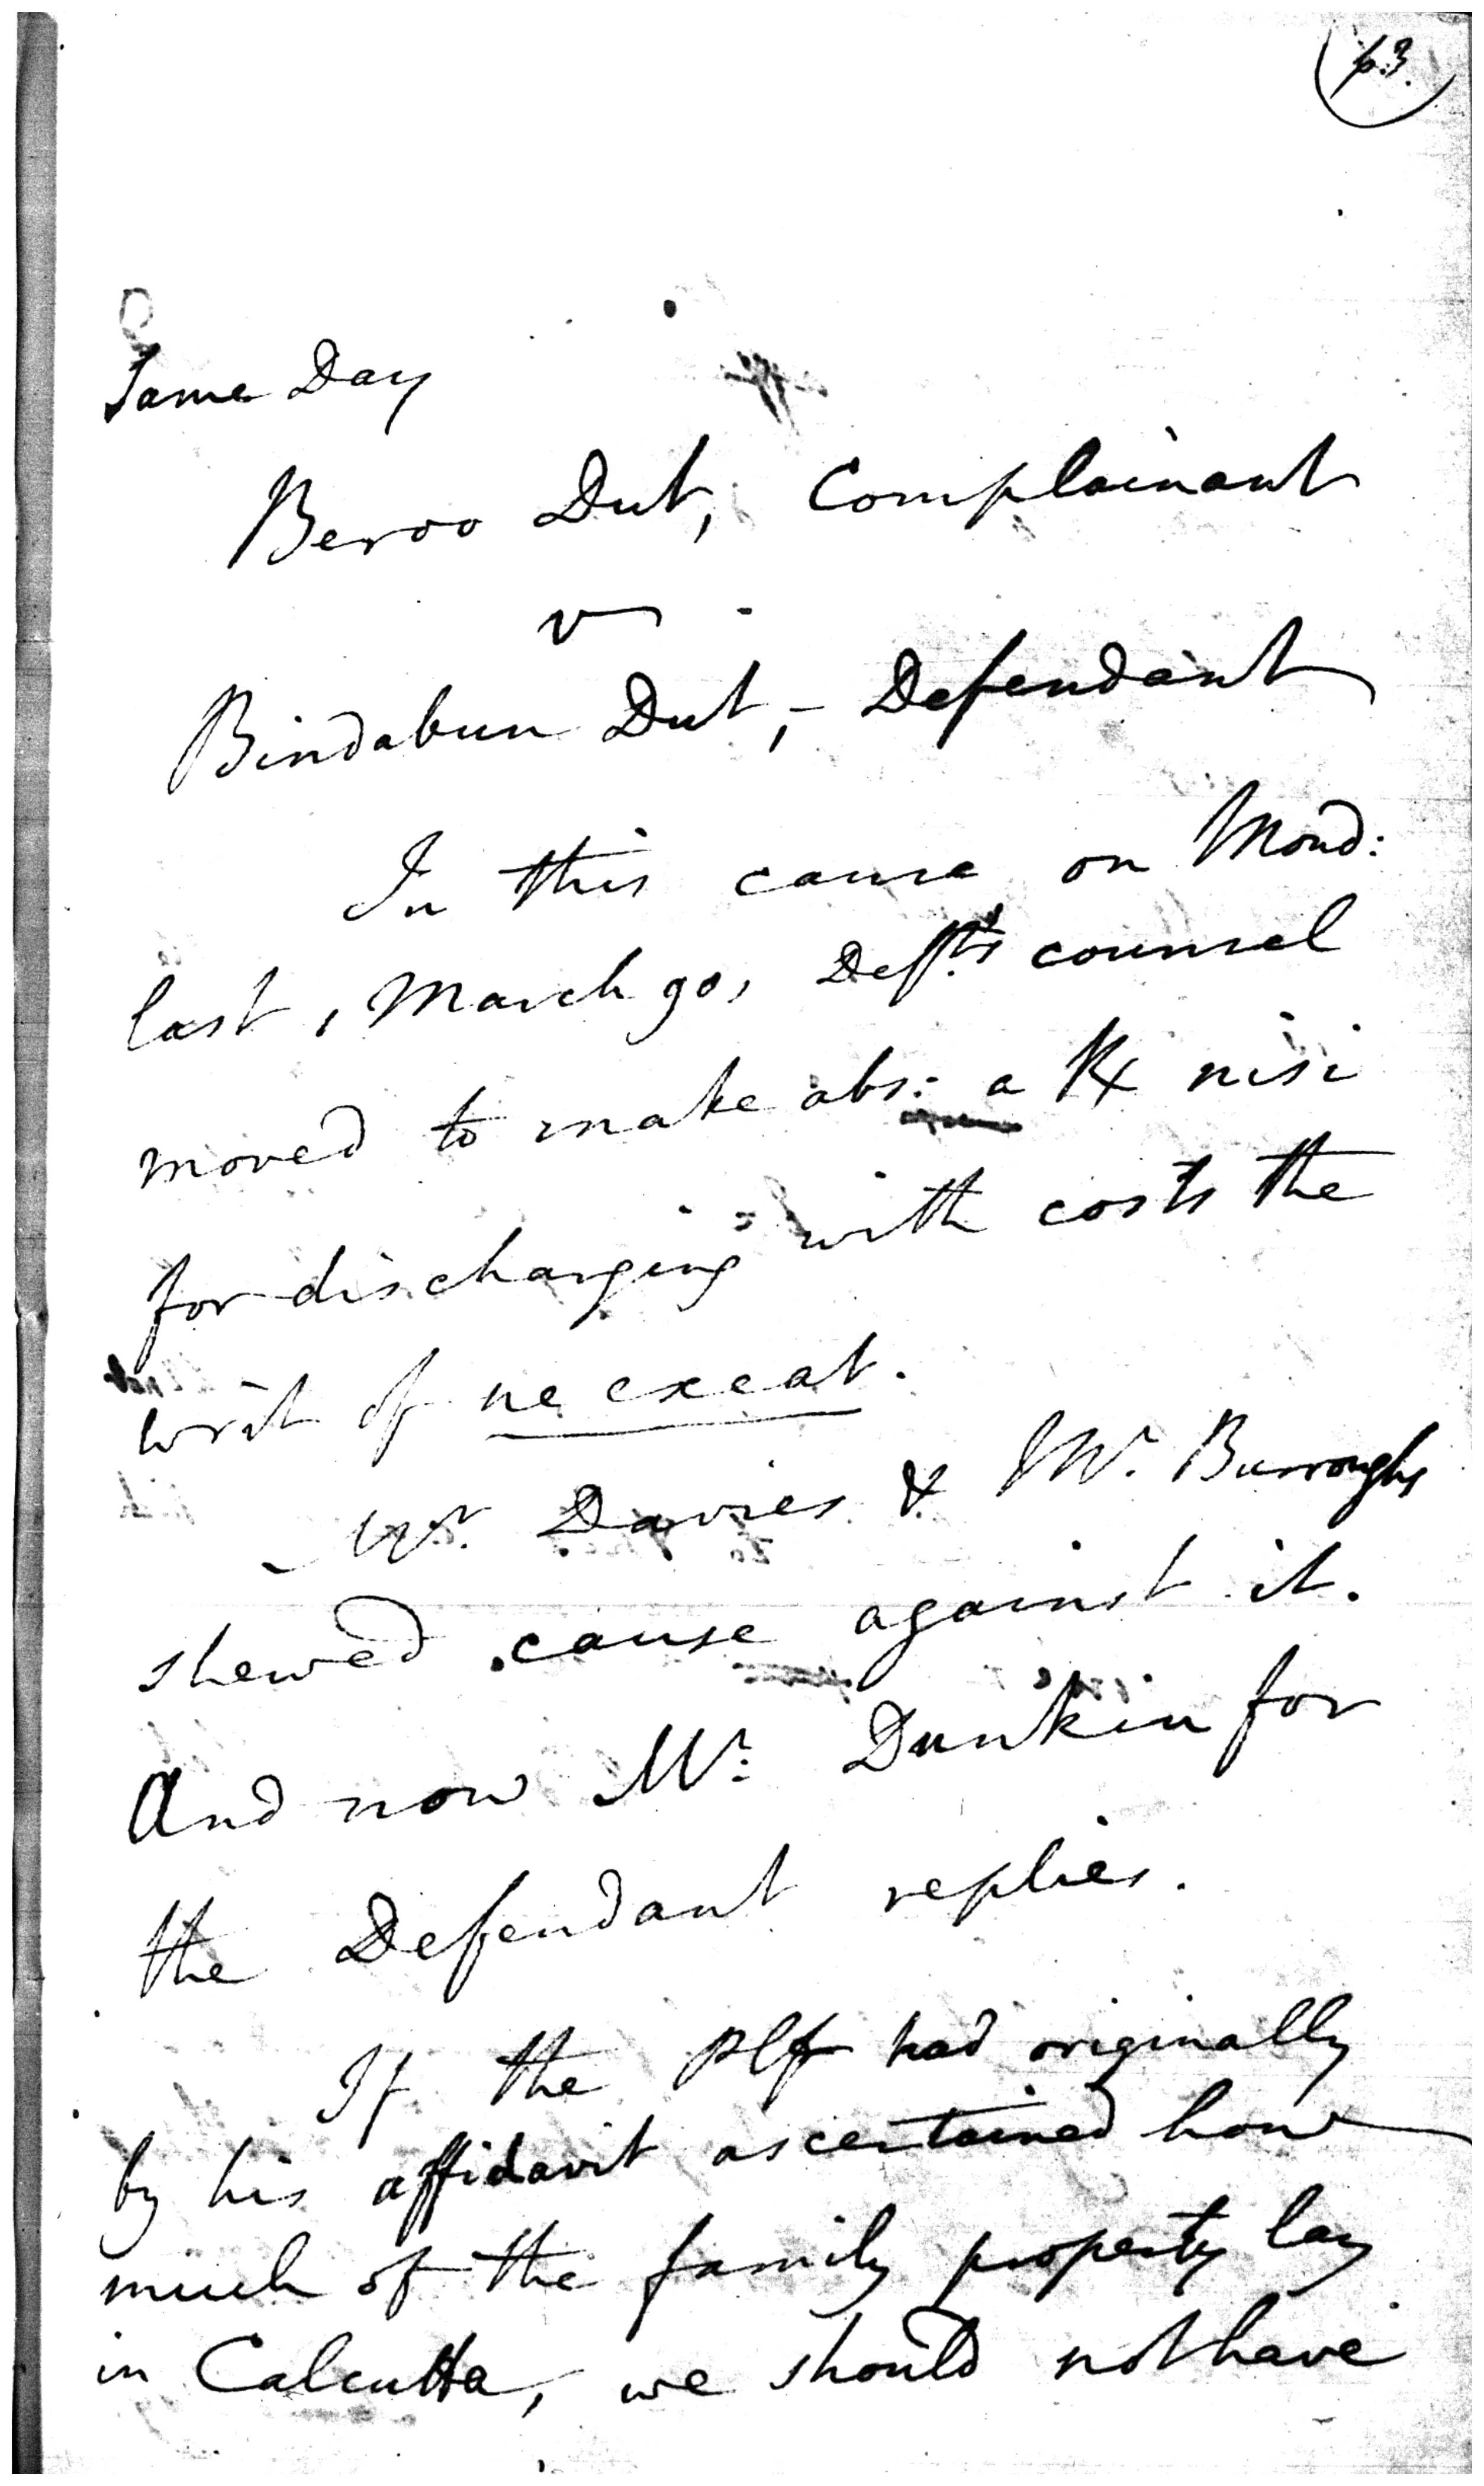 p.3.
Same Day
Beroo Dut, Complainant
v
Bindabun Dut, - Defendant
In this cause on Mond:
last, March 90, Defts counsel
moved to make abs: a Rx nisi
for discharging with costs the
writ of ne exeat.
Mr. Davies & Mr. Burroughs
shewed cause against it.
And now Mr: Dunkin for
the Defendant replies.
If the Plff had originally
by his affidavit ascertained how
much of the family property lay
in Calcutta, we should not have